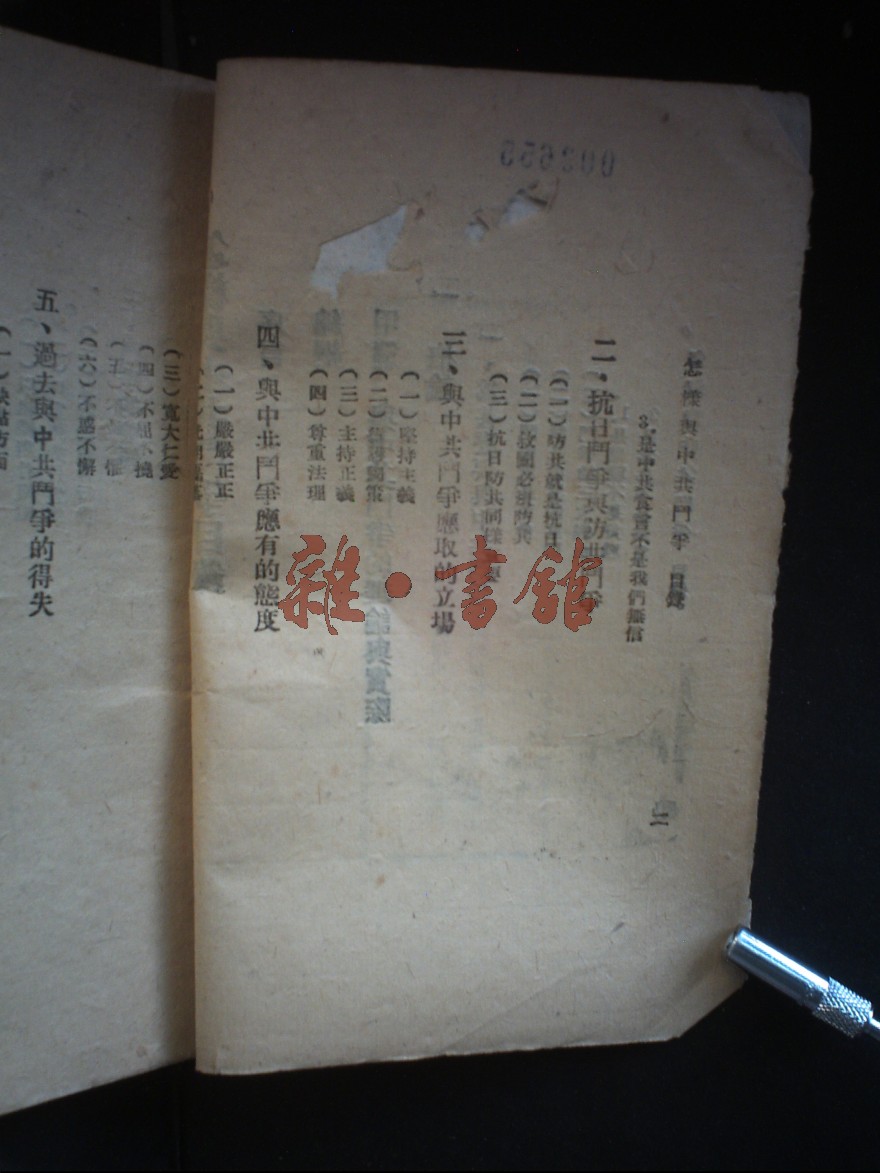 怎樣與中共鬥爭 目錄
3.是中共食言不是我們無信
二、抗日鬥爭與防共鬥爭
(一)防共就是抗日
(二)救國必須防共
(三)抗日防共同樣
三、與中共鬥爭應取的立場
(一)堅持主義
(二)
(三)主持正義
(四)尊重法理
四、與中共鬥爭應有的態度
(一)嚴嚴正正
(三)寬大仁愛
(四)不屈不撓
(六)不惑不懈
五、過去與中共鬥爭的得失
二
雜·書館